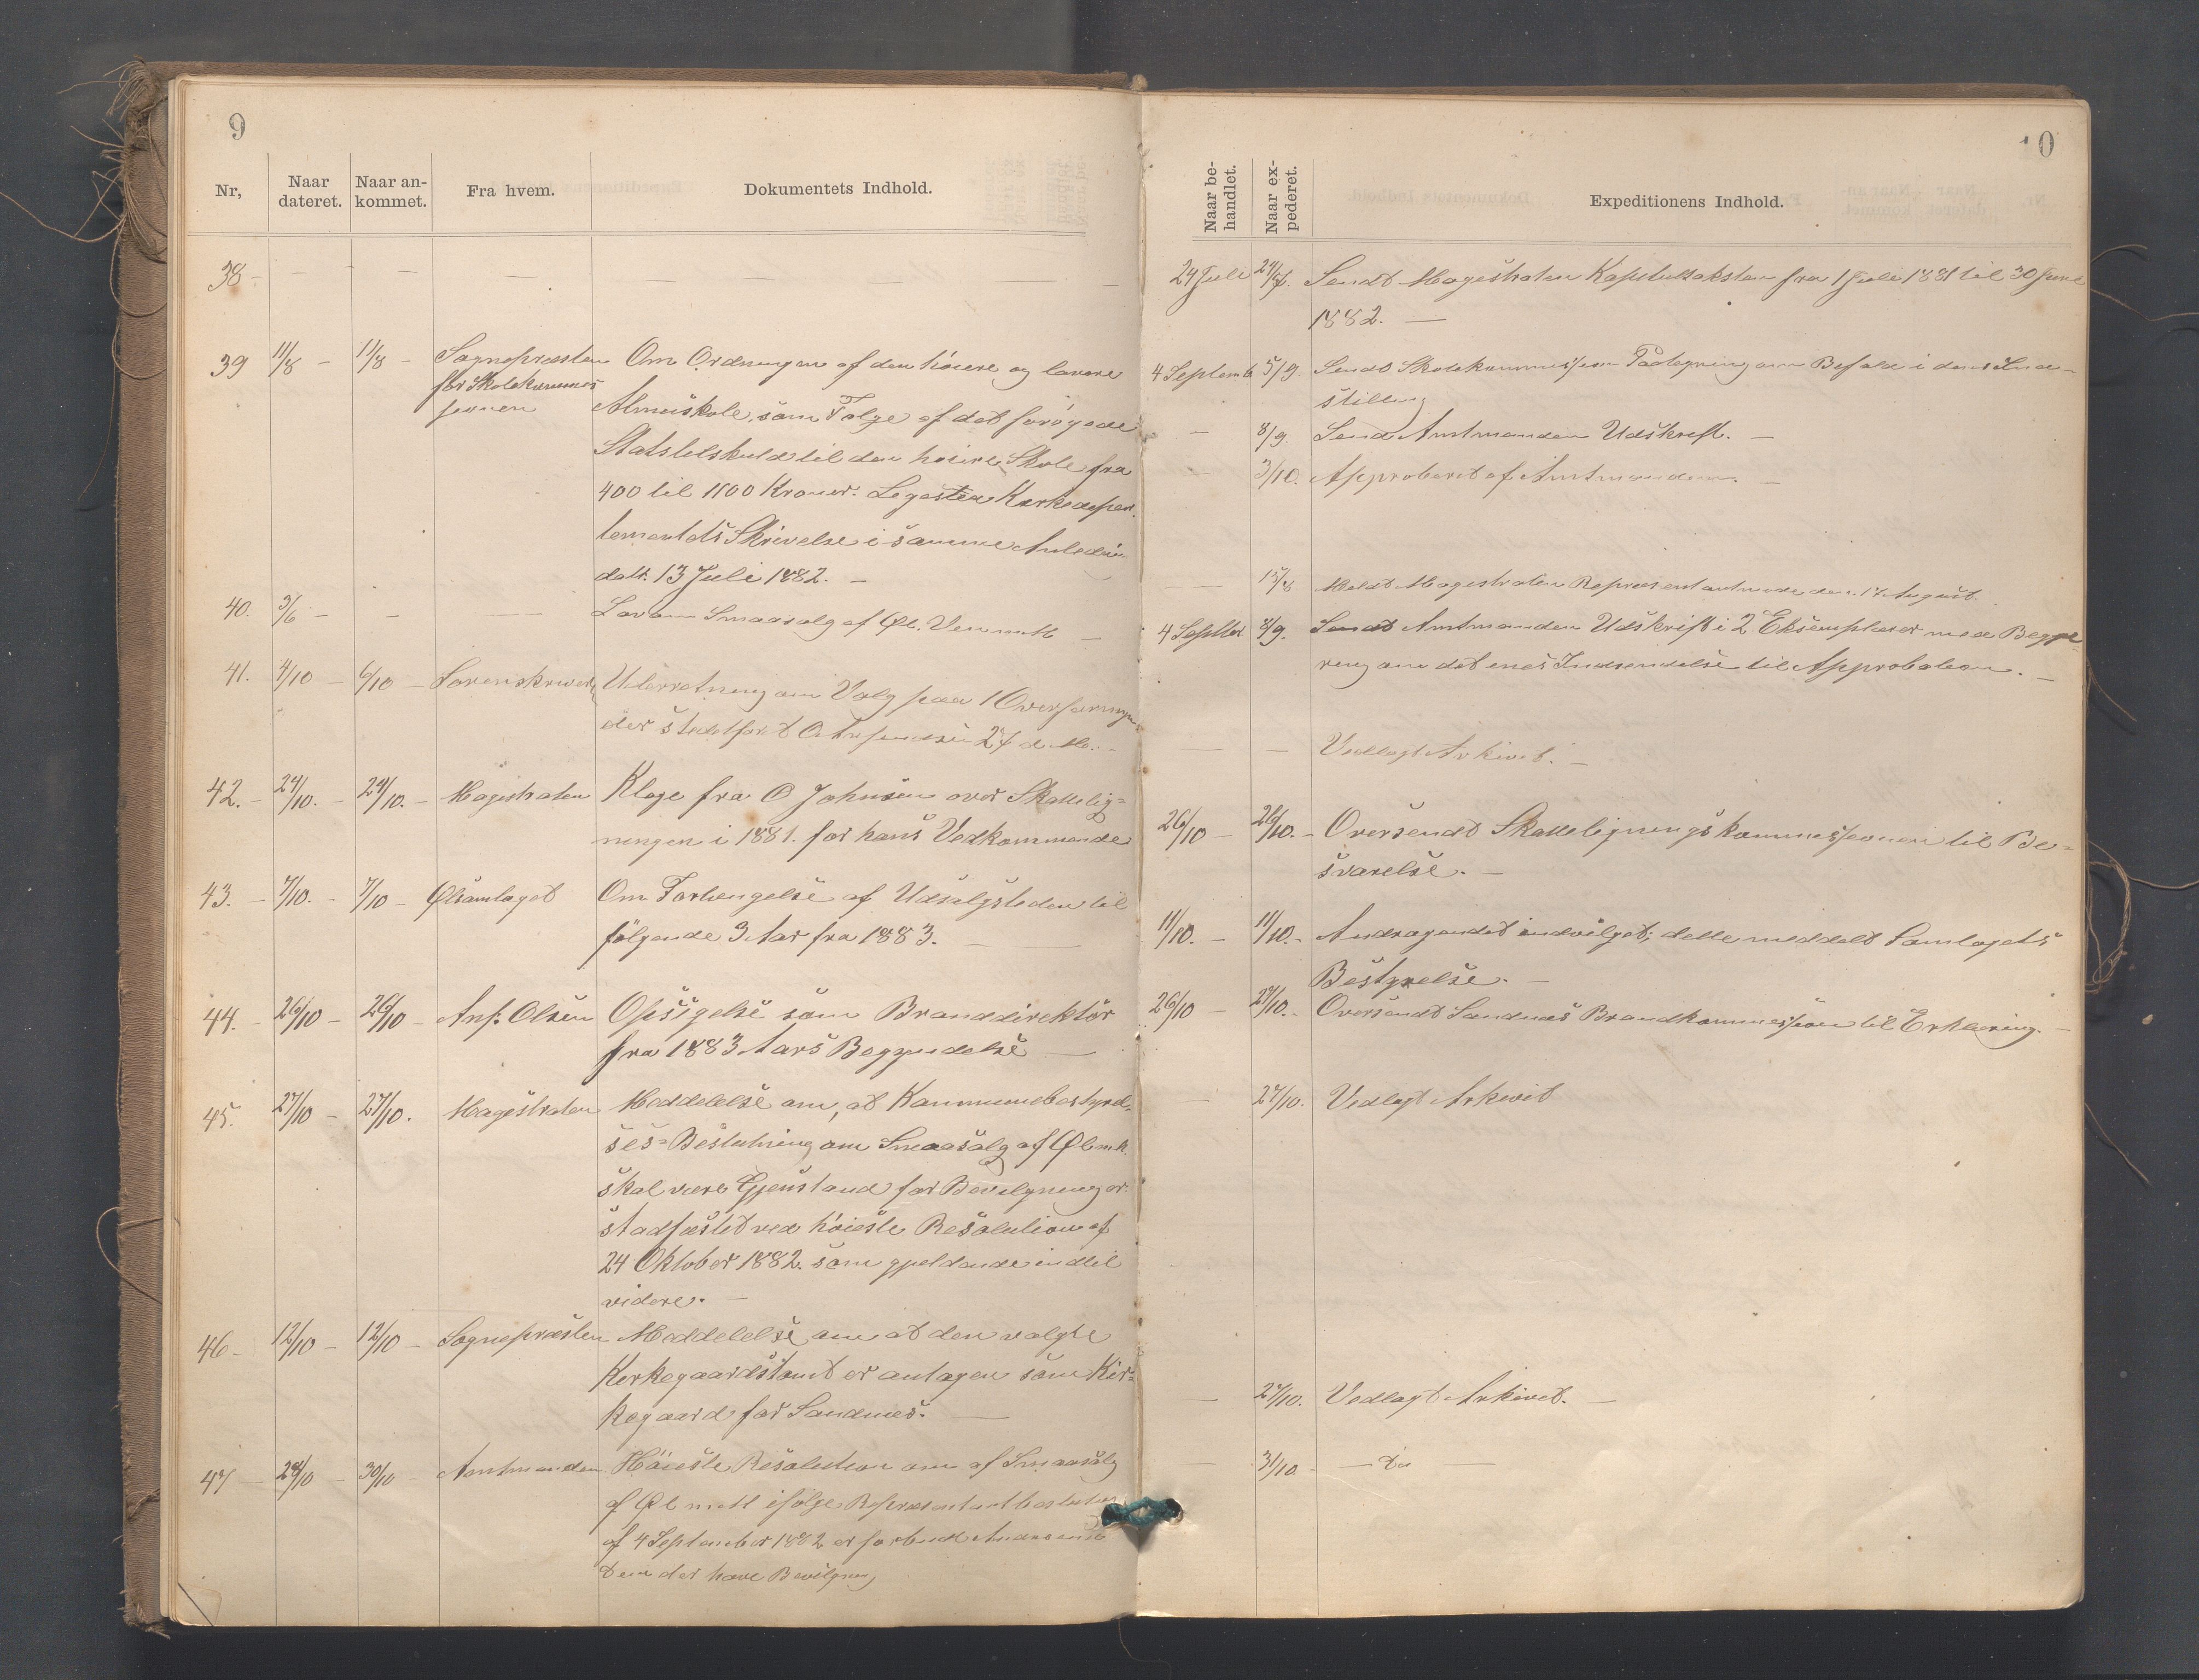 9
Nr,
Naar dateret.
Naar an-kommet.
Fra hvem.
Dokumentets Indhold.
38 - - - - -
39 11/8 - 11/8 - Sognepræsten Om Ordningen af den høiere og lavere
for Skolekommis
sionen Almueskole, som Følge af det forøgede
Statstilskud til den høiere Skole fra
400 til 1100 Kroner.
tementets Skrivelse i samme Anledn.
dat. 13 Juli 1882. -
40. 3/6 - - - Lov om Smaasalg af Øl, Vin mtt -
41. 4/10 - 6/10 - Sorenskriver Underretning om Valg paa 1 Overformyn
der 27 d. M. -
42. - 24/10. - 24/10. - Magistraten Klage fra O Johnsen over Skattelig=
ningen i 1881. for hans Vedkommende
43. - 7/10. - 7/10 - Ølsamlaget Om Forlængelse af Udsalgstiden til
følgende 3 Aar fra 1883. -
44. - 26/10 - 26/10 - Anf. Olsen Opsigelse som Branddirektør
fra 1883 Aars Begyndelse -
45. 27/10 - 27/10. Magistraten Meddelelse om, at Kommunebestyrel=
ses=Beslutning om Smaasalg af Øl m.k.
skal være Gjenstand for Bevilgning er
stadfæstet ved høieste Resolution af
24 Oktober 1882. som gjeldende indtil
videre. -
46 - 12/10 - 12/10 - Sognepræsten Meddelelse om at den valgte
Kirkegaardstomt er antagen som Kir=
kegaard for Sandnes. -
47 - 28/10 - 30/10 - Amtmanden Høieste Resolution om af Smaasalg
af Øl mtt ifølge
af 4 September 1882 er forbudt Andre end
dem der have Bevilgning
10
Naar be-handlet.
Naar ex-pederet.
Expeditionens Indhold.
24 Juli 24/7. Sendt Magistraten Kapitulstaksten fra 1 Juli 1881 til 30 Juni
1882. -
4 Septemb 5/9. Sendt Skolekommissionen Paategning om Bifald i dens Ind-
stilling
- 8/9. Send Amtmanden Udskrift. -
- 3/10. Approberet af Amtmanden. -
- 15/8 Meldt Magistraten Repræsentantmøde den 17 August.
4 Septbr 8/9. Sendt Amtmanden Udskrift i 2 Eksemplarer med Begjæ
ring om det enes Indsendelse til Approbation. -
- - Vedlagt Arkivet. -
26/10 - 28/10. - Oversendt Skatteligningskommissionen til Be=
svarelse. -
11/10. - 11/10. - Andragendet indvilget; dette meddelt Samlagets
Bestyrelse. -
26/10 - 27/10. - Oversendt Sandnes Brandkommission til Erklæring. -
- 27/10. Vedlagt Arkivet
- 27/10. Vedlagt Arkivet. -
- 31/10 - do -